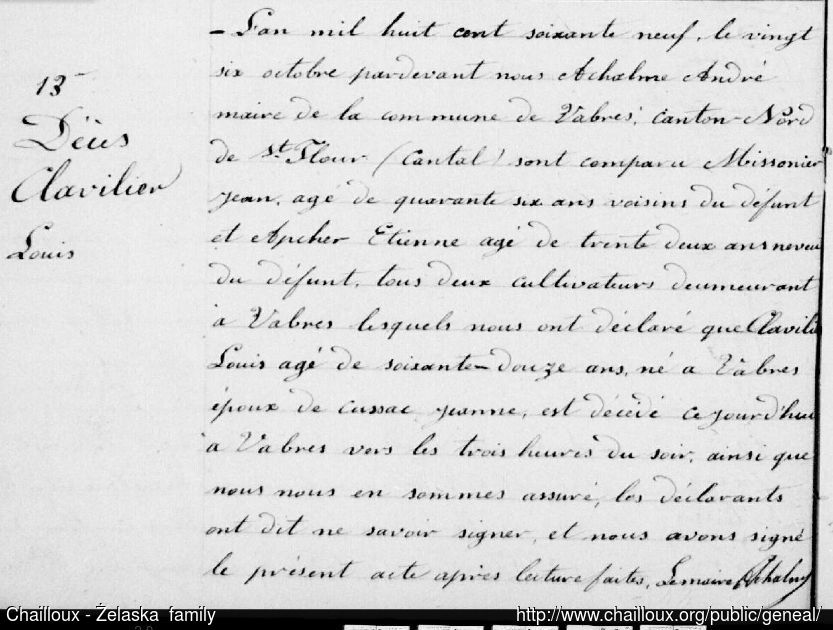 13
Décès
Clavilier
Louis
L'an mil huit cent soixante neuf, le vingt
six octobre pardevant nous Achalme André
maire de la commune de Vabres, canton Nord
de St. Flour (Cantal) sont comparu Missonier
jean, agé de quarante six ans voisins du défunt
et Apcher Etienne agé de trente deux ans neveu
du défunt, tous deux cultivateurs deumeurant
à Vabres lesquels nous ont déclaré que Clavilier
Louis agé de soixante-douze ans, né a Vâbres
époux de cussac jeanne, est décédé ce jourd'hui
a Vabres vers les trois heures du soir, ainsi que
nous nous en sommes assuré, les déclarants
ont dit ne savoir signer, et nous avons signé
le présent acte après lecture faites, Lemaire Achalme
Chailloux - Żelaska family
http://www.chailloux.org/public/geneal/